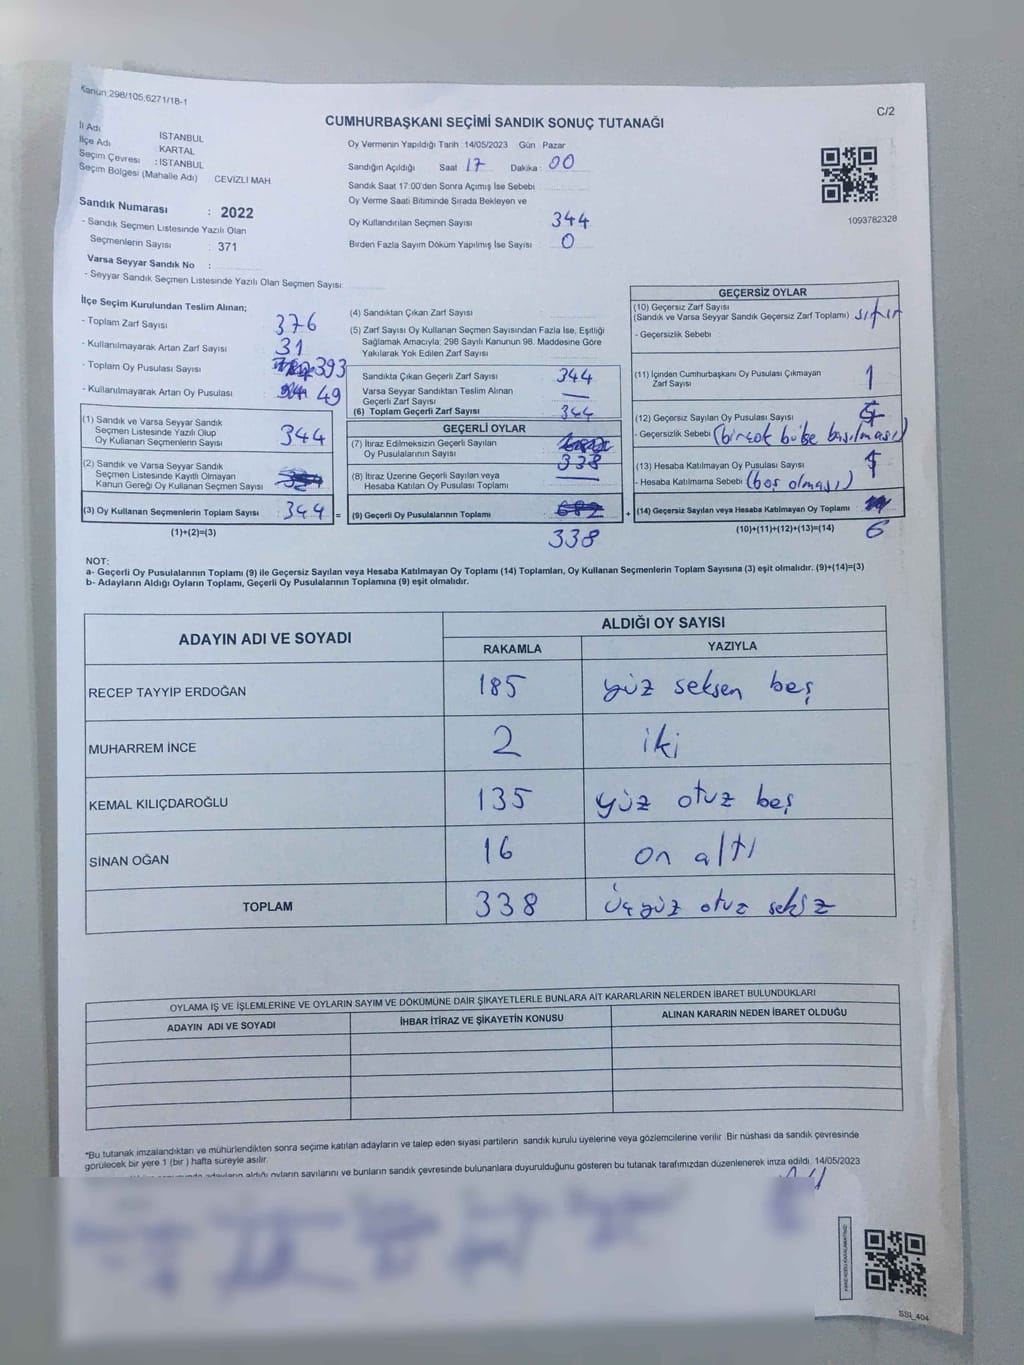 Kanun:298/105;6271/18-1
C/2
CUMHURBAŞKANI SEÇİMİ SANDIK SONUÇ TUTANAĞI
İl Adı : İSTANBUL
İlçe Adı : KARTAL
Seçim Çevresi : İSTANBUL
Seçim Bölgesi (Mahalle Adı) CEVİZLİ MAH.
Sandık Numarası : 2022
- Sandık Seçmen Listesinde Yazılı Olan
Seçmenlerin Sayısı : 371
Varsa Seyyar Sandık No :
- Seyyar Sandık Seçmen Listesinde Yazılı Olan Seçmen Sayısı:
Oy Vermenin Yapıldığı Tarih :14/05/2023 Gün Pazar
Sandığın Açıldığı Saat 17 Dakika : 00
Sandık Saat 17:00'den Sonra Açımış İse Sebebi
Oy Verme Saati Bitiminde Sırada Bekleyen ve
Oy Kullandırılan Seçmen Sayısı 344
Birden Fazla Sayım Döküm Yapılmış İse Sayısı 0
1093782328
İlçe Seçim Kurulundan Teslim Alınan;
- Toplam Zarf Sayısı 376
- Kullanılmayarak Artan Zarf Sayısı 31
- Toplam Oy Pusulası Sayısı 393
- Kullanılmayarak Artan Oy Pusulası 49
(1) Sandık ve Varsa Seyyar Sandık
Seçmen Listesinde Yazılı Olup
Oy Kullanan Seçmenlerin Sayısı 344
(2) Sandık ve Varsa Seyyar Sandık
Seçmen Listesinde Kayıtlı Olmayan
Kanun Gereği Oy Kullanan Seçmen Sayısı
(3) Oy Kullanan Seçmenlerin Toplam Sayısı 344 =
(1)+(2)=(3)
(4) Sandıktan Çıkan Zarf Sayısı
(5) Zarf Sayısı Oy Kullanan Seçmen Sayısından Fazla İse, Eşitliği
Sağlamak Amacıyla; 298 Sayılı Kanunun 98. Maddesine Göre
Yakılarak Yok Edilen Zarf Sayısı
Sandıkta Çıkan Geçerli Zarf Sayısı 344
Varsa Seyyar Sandıktan Teslim Alınan
Geçerli Zarf Sayısı —
(6) Toplam Geçerli Zarf Sayısı 344
GEÇERLİ OYLAR
(7) İtiraz Edilmeksizin Geçerli Sayılan
Oy Pusulalarının Sayısı 338
(8) İtiraz Üzerine Geçerli Sayılan veya
Hesaba Katılan Oy Pusulası Toplamı —
(9) Geçerli Oy Pusulalarının Toplamı 682 +
338
GEÇERSİZ OYLAR
(10) Geçersiz Zarf Sayısı
(Sandık ve Varsa Seyyar Sandık Geçersiz Zarf Toplamı) sıfır
- Geçersizlik Sebebi :
(11) İçinden Cumhurbaşkanı Oy Pusulası Çıkmayan
Zarf Sayısı 1
(12) Geçersiz Sayılan Oy Pusulası Sayısı :
- Geçersizlik Sebebi (birçok bölge basılması)
(13) Hesaba Katılmayan Oy Pusulası Sayısı :
- Hesaba Katılmama Sebebi (boş olması)
(14) Geçersiz Sayılan veya Hesaba Katılmayan Oy Toplamı :
(10)+(11)+(12)+(13)=(14) 6
NOT:
a- Geçerli Oy Pusulalarının Toplamı (9) ile Geçersiz Sayılan veya Hesaba Katılmayan Oy Toplamı (14) Toplamları, Oy Kullanan Seçmenlerin Toplam Sayısına (3) eşit olmalıdır. (9)+(14)=(3)
b- Adayların Aldığı Oyların Toplamı, Geçerli Oy Pusulalarının Toplamına (9) eşit olmalıdır.
ADAYIN ADI VE SOYADI
ALDIĞI OY SAYISI
RAKAMLA YAZIYLA
RECEP TAYYİP ERDOĞAN 185 yüz seksen beş
MUHARREM İNCE 2 iki
KEMAL KILIÇDAROĞLU 135 yüz otuz beş
SİNAN OĞAN 16 on altı
TOPLAM 338 Üçyüz otuz sekiz
OYLAMA İŞ VE İŞLEMLERİNE VE OYLARIN SAYIM VE DÖKÜMÜNE DAİR ŞİKAYETLERLE BUNLARA AİT KARARLARIN NELERDEN İBARET BULUNDUKLARI
ADAYIN ADI VE SOYADI İHBAR İTİRAZ VE ŞİKAYETİN KONUSU ALINAN KARARIN NEDEN İBARET OLDUĞU
*Bu tutanak imzalandıktan ve mühürlendikten sonra seçime katılan adayların ve talep eden siyasi partilerin sandık kurulu üyelerine veya gözlemcilerine verilir. Bir nüshası da sandık çevresinde
görülecek bir yere 1 (bir) hafta süreyle asılır.
adayların aldığı oyların sayılarını ve bunların sandık çevresinde bulunanlara duyurulduğunu gösteren bu tutanak tarafımızdan düzenlenerek imza edildi. 14/05/2023
SSİ_404